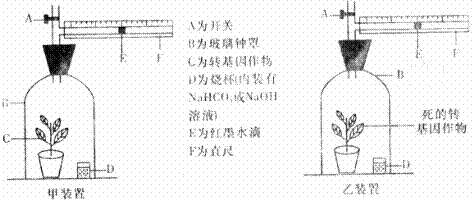 A
E
F
B
C
D
甲装置
A为开关
B为玻璃钟罩
C为转基因作物
D为烧杯(内装有
NaHCO₃或NaOH
溶液)
E为红墨水滴
F为直尺
A
E
F
B
死的转
基因作物
D
乙装置